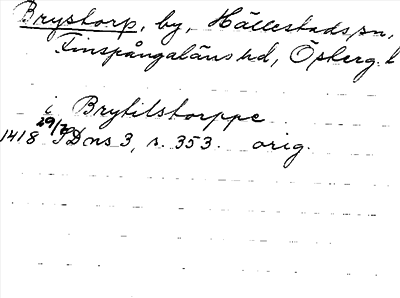 Brystorp, by, Hällestads sn,
Finspångaläns hd, Östberg. l
i Brytilstorppe
29/7
1418 SDns 3, s. 353. orig.